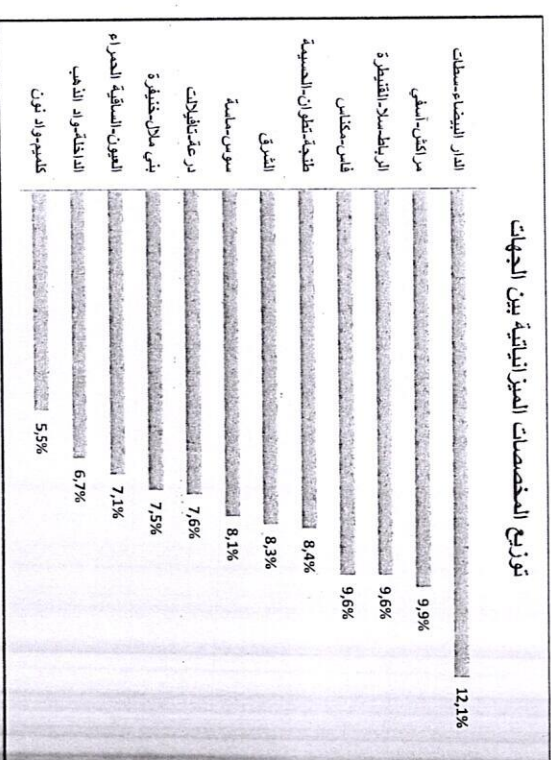 توزيع المخصصات الميزانياتية بين الجهات
الدار البيضاء-سطات 12,1%
مراكش-أسفي 9,9%
الرباط-سلا-القنيطرة 9,6%
فاس-مكناس 9,6%
طنجة-تطوان-الحسيمة 8,4%
الشرق 8,3%
سوس-ماسة 8,1%
درعة-تافيلالت 7,6%
بني ملال-خنيفرة 7,5%
العيون-الساقية الحمراء 7,1%
الداخلة-واد الذهب 6,7%
كلميم-واد نون 5,5%